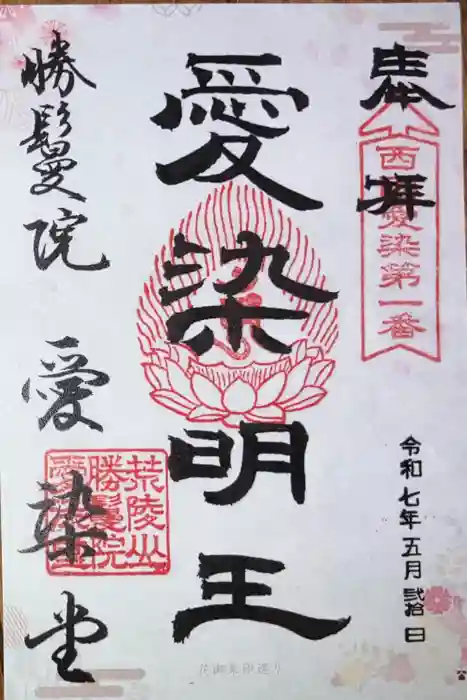 奉拝
西国愛染第一番
令和七年五月弐拾日
愛染明王
荒陵山
勝鬘院
愛染堂
勝鬘院 愛染堂
花御朱印巡り